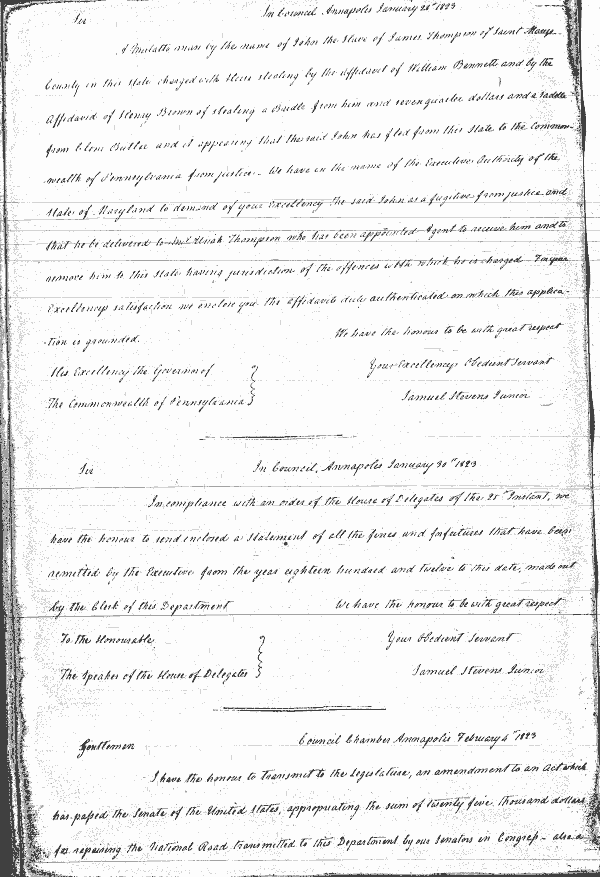 Sir In Council Annapolis January 28th 1823
A Mulatto man by the name of John the Slave of James Thompson of Saint Marys
County in this State charged with Horse stealing by the Affidavit of William Bennett and by the
Affidavid of Henry Brown of stealing a Bridle from him and seven quarter dollars and a saddle
from Clem Butler and it appearing that the said John has fled from this State to the Common-
wealth of Pennsylvania from justice - We have in the name of the Executive Authority of the
State of Maryland to demand of your Excellency the said John as a fugitive from justice and
that he be delivered to Uriah Thompson who has been appointed Agent to receive him and to
remove him to this State having jurisdiction of the offences with which he is charged For your
Excellencys satisfaction we enclose you the affidavits duly authenticated on which this applica-
tion is grounded. We have the honour to be with great respect
His Excellency the Governor of Your Excellencys Obedient Servant
The Commonwealth of Pennsylvania Samuel Stevens Junior
Sir In Council, Annapolis January 30th 1823
In compliance with an order of the House of Delegates of the 25th Instant, we
have the honour to send enclosed a statement of all the fines and forfeitures that have been
remitted by the Executive from the year eighteen hundred and twelve to this date, made out
by the Clerk of this Department We have the honour to be with great respect
To the Honourable Your Obedient Servant
The Speaker of the House of Delegates Samuel Stevens Junior
Gentlemen Council Chamber Annapolis February 4th 1823
I have the honour to transmit to the Legislature, an amendment to an Act which
has passed the Senate of the United States, appropriating the sum of twenty five thousand dollars
for repairing the National Road transmitted to this Department by our Senators in Congress - also a